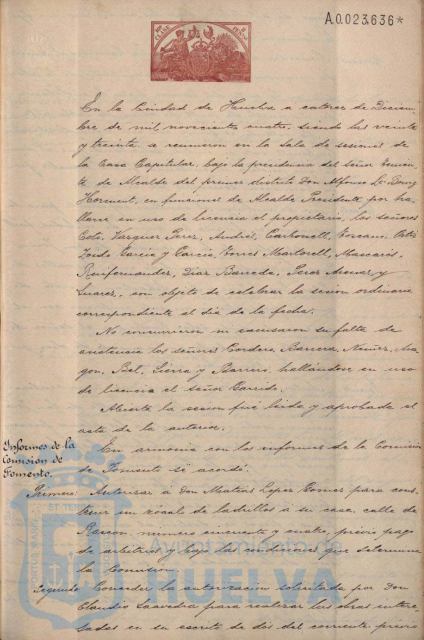 A.0.023,636*
En la Ciudad de Huelva a catorce de Diciem-
bre de mil novecientos cuatro, siendo las veinte
y treinta se reunieron en la sala de sesiones de
la Casa Capitular, bajo la presidencia del Señor Tenien-
te de Alcalde del primer distrito Don Alfonso
en funciones de Alcalde Presidente, por ha-
llarse en uso de licencia el propietario, los señores
Coto, Vazquez Perez, Carbonell,
Garcia y Garcia, Torres Martorell, Mascarós,
Diaz Barreda, Perez y
Suarez, con objeto de celebrar la sesion ordinaria
correspondiente al dia de la fecha.
No concurrieron ni excusaron su falta de
asistencia los señores Cordero, Barrera, Nuñez,
y Barrero, hallándose en uso
de licencia el señor Garrido.
Abierta la sesion fué leida y aprobada el
acta de la anterior.
Informes de la
Comision de
Fomento.
En armonia con los informes de la Comision
de Fomento se acordó:
Primero. Autorizar á Don Matias Lopez Gomez para cons-
truir un zócalo de ladrillos á su casa, calle de
Rascon, número cincuenta y cuatro, previo pago
de arbitrios y bajo las condiciones que determina
la Comision.
Segundo. Conceder la autorizacion solicitada por Don
Claudio Saavedra para realizar las obras intere-
sadas en su escrito de dos del corriente, previo
Ayuntamiento de
HUELVA